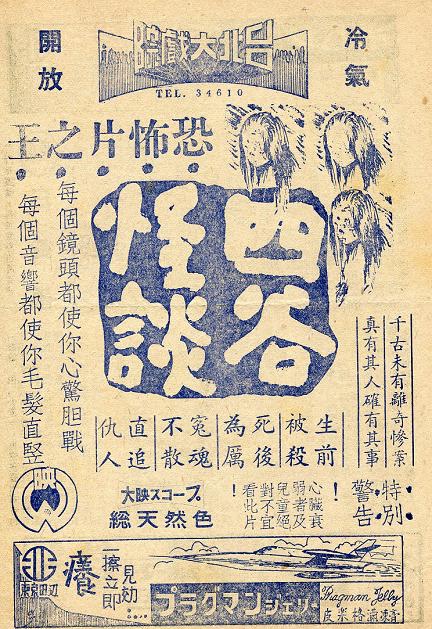 冷氣
開放
台北大戲院
TEL. 34610
恐怖片之王
四谷
怪談
每個鏡頭都使你心驚胆戰
每個音響都使你毛髮直竪
千古未有離奇慘案
真有其人確有其事
生前被殺
死後為厲
冤魂不散
直追仇人
特別警告！
心臟衰
弱者及
兒童絕
對不宜
看此片！
大映スコープ
総天然色
癢
一擦立即
見効
プラグマンジェリー
Pragman Jelly
東京田辺